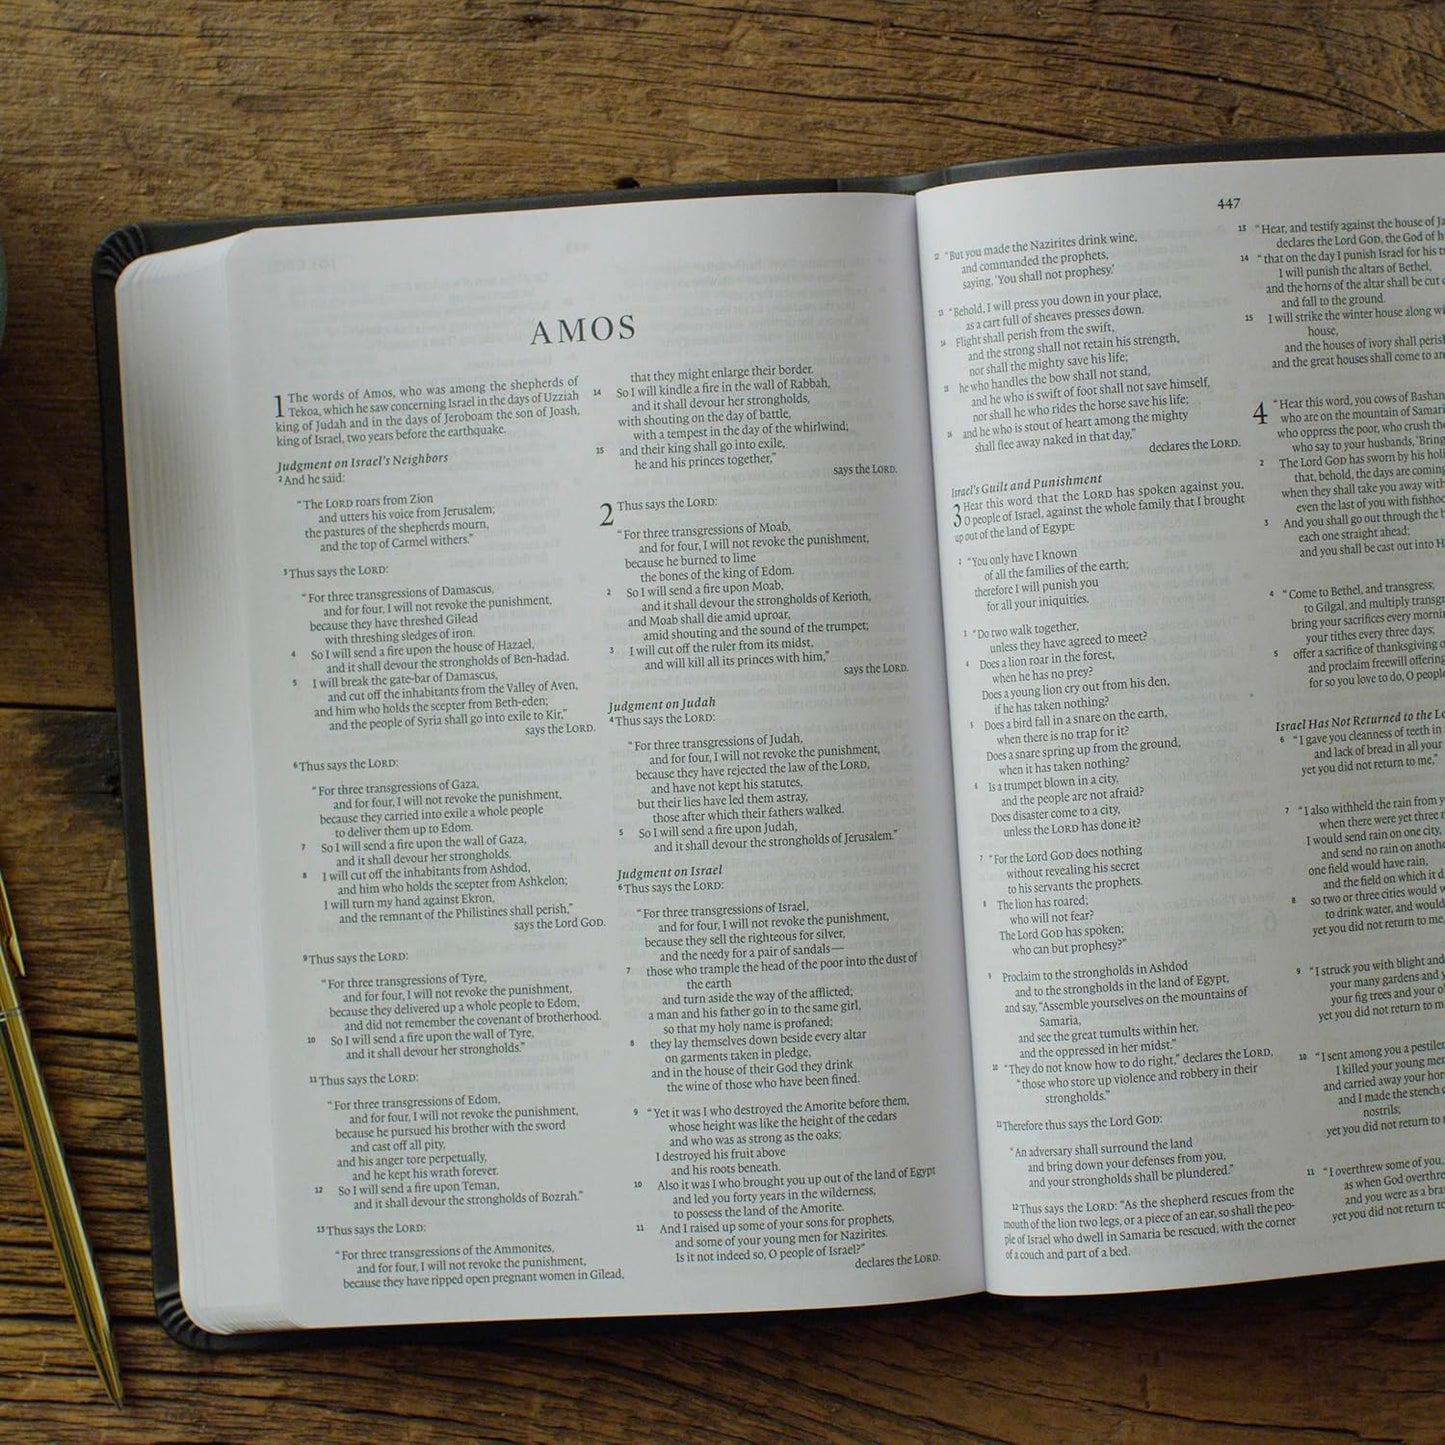 AMOS
1 The words of Amos, who was among the shepherds of
Tekoa, which he saw concerning Israel in the days of Uzziah
king of Judah and in the days of Jeroboam the son of Joash,
king of Israel, two years before the earthquake.
Judgment on Israel's Neighbors
2 And he said:
“The LORD roars from Zion
and utters his voice from Jerusalem;
the pastures of the shepherds mourn,
and the top of Carmel withers.”
3 Thus says the LORD:
“For three transgressions of Damascus,
and for four, I will not revoke the punishment,
because they have threshed Gilead
with threshing sledges of iron.
4 So I will send a fire upon the house of Hazael,
and it shall devour the strongholds of Ben-hadad.
5 I will break the gate-bar of Damascus,
and cut off the inhabitants from the Valley of Aven,
and him who holds the scepter from Beth-eden;
and the people of Syria shall go into exile to Kir,”
says the LORD.
6 Thus says the LORD:
“For three transgressions of Gaza,
and for four, I will not revoke the punishment,
because they carried into exile a whole people
to deliver them up to Edom.
7 So I will send a fire upon the wall of Gaza,
and it shall devour her strongholds.
8 I will cut off the inhabitants from Ashdod,
and him who holds the scepter from Ashkelon;
I will turn my hand against Ekron,
and the remnant of the Philistines shall perish,”
says the Lord GOD.
9 Thus says the LORD:
“For three transgressions of Tyre,
and for four, I will not revoke the punishment,
because they delivered up a whole people to Edom,
and did not remember the covenant of brotherhood.
10 So I will send a fire upon the wall of Tyre,
and it shall devour her strongholds.”
11 Thus says the LORD:
“For three transgressions of Edom,
and for four, I will not revoke the punishment,
because he pursued his brother with the sword
and cast off all pity,
and his anger tore perpetually,
and he kept his wrath forever.
12 So I will send a fire upon Teman,
and it shall devour the strongholds of Bozrah.”
13 Thus says the LORD:
“For three transgressions of the Ammonites,
and for four, I will not revoke the punishment,
because they have ripped open pregnant women in Gilead,
that they might enlarge their border.
14 So I will kindle a fire in the wall of Rabbah,
and it shall devour her strongholds,
with shouting on the day of battle,
with a tempest in the day of the whirlwind;
15 and their king shall go into exile,
he and his princes together,”
says the LORD.
2 Thus says the LORD:
“For three transgressions of Moab,
and for four, I will not revoke the punishment,
because he burned to lime
the bones of the king of Edom.
2 So I will send a fire upon Moab,
and it shall devour the strongholds of Kerioth,
and Moab shall die amid uproar,
amid shouting and the sound of the trumpet;
3 I will cut off the ruler from its midst,
and will kill all its princes with him,”
says the LORD.
Judgment on Judah
4 Thus says the LORD:
“For three transgressions of Judah,
and for four, I will not revoke the punishment,
because they have rejected the law of the LORD,
and have not kept his statutes,
but their lies have led them astray,
those after which their fathers walked.
5 So I will send a fire upon Judah,
and it shall devour the strongholds of Jerusalem.”
Judgment on Israel
6 Thus says the LORD:
“For three transgressions of Israel,
and for four, I will not revoke the punishment,
because they sell the righteous for silver,
and the needy for a pair of sandals—
7 those who trample the head of the poor into the dust of
the earth
and turn aside the way of the afflicted;
a man and his father go in to the same girl,
so that my holy name is profaned;
8 they lay themselves down beside every altar
on garments taken in pledge,
and in the house of their God they drink
the wine of those who have been fined.
9 “Yet it was I who destroyed the Amorite before them,
whose height was like the height of the cedars
and who was as strong as the oaks;
I destroyed his fruit above
and his roots beneath.
10 Also it was I who brought you up out of the land of Egypt
and led you forty years in the wilderness,
to possess the land of the Amorite.
11 And I raised up some of your sons for prophets,
and some of your young men for Nazirites.
Is it not indeed so, O people of Israel?”
declares the LORD.
447
12 “But you made the Nazirites drink wine,
and commanded the prophets,
saying, ‘You shall not prophesy.’
13 “Behold, I will press you down in your place,
as a cart full of sheaves presses down.
14 Flight shall perish from the swift,
and the strong shall not retain his strength,
nor shall the mighty save his life;
15 he who handles the bow shall not stand,
and he who is swift of foot shall not save himself,
nor shall he who rides the horse save his life;
16 and he who is stout of heart among the mighty
shall flee away naked in that day,”
declares the LORD.
Israel's Guilt and Punishment
3 Hear this word that the LORD has spoken against you,
O people of Israel, against the whole family that I brought
up out of the land of Egypt:
2 “You only have I known
of all the families of the earth;
therefore I will punish you
for all your iniquities.
3 “Do two walk together,
unless they have agreed to meet?
4 Does a lion roar in the forest,
when he has no prey?
Does a young lion cry out from his den,
if he has taken nothing?
5 Does a bird fall in a snare on the earth,
when there is no trap for it?
Does a snare spring up from the ground,
when it has taken nothing?
6 Is a trumpet blown in a city,
and the people are not afraid?
Does disaster come to a city,
unless the LORD has done it?
7 “For the Lord GOD does nothing
without revealing his secret
to his servants the prophets.
8 The lion has roared;
who will not fear?
The Lord GOD has spoken;
who can but prophesy?”
9 Proclaim to the strongholds in Ashdod
and to the strongholds in the land of Egypt,
and say, “Assemble yourselves on the mountains of
Samaria,
and see the great tumults within her,
and the oppressed in her midst.”
10 “They do not know how to do right,” declares the LORD,
“those who store up violence and robbery in their
strongholds.”
11 Therefore thus says the Lord GOD:
“An adversary shall surround the land
and bring down your defenses from you,
and your strongholds shall be plundered.”
12 Thus says the LORD: “As the shepherd rescues from the
mouth of the lion two legs, or a piece of an ear, so shall the peo-
ple of Israel who dwell in Samaria be rescued, with the corner
of a couch and part of a bed.
13 “Hear, and testify against the house of
declares the Lord GOD, the God of
14 “that on the day I punish Israel for his
I will punish the altars of Bethel,
and the horns of the altar shall be cut
and fall to the ground.
15 I will strike the winter house along
house,
and the houses of ivory shall
and the great houses shall come to
4 “Hear this word, you cows of Bashan
who are on the mountain of
who oppress the poor, who crush
who say to your husbands,
2 The Lord GOD has sworn by his
that, behold, the days are
when they shall take you away
even the last of you with
3 And you shall go out through the
each one straight ahead;
and you shall be cast out into
4 “Come to Bethel, and transgress;
to Gilgal, and multiply
bring your sacrifices every
your tithes every three days;
5 offer a sacrifice of thanksgiving
and proclaim freewill
for so you love to do, O
Israel Has Not Returned to the
6 “I gave you cleanness of teeth in
and lack of bread in all your
yet you did not return to me,”
7 “I also withheld the rain from
when there were yet three
I would send rain on one city,
and send no rain on
one field would have rain,
and the field on which it
8 so two or three cities would
to drink water, and would
yet you did not return to me,
9 “I struck you with blight and
your many gardens and
your fig trees and your
yet you did not return to
10 “I sent among you a
I killed your young
and carried away your
and I made the stench
nostrils;
yet you did not return to
11 “I overthrew some of you,
as when God
and you were as a
yet you did not return